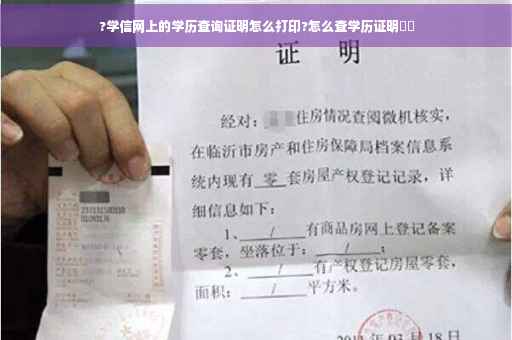 ?学信网上的学历查询证明怎么打印?怎么查学历证明
证 明
经对: 住房情况查阅微机核实,
在临沂市房产和住房保障局档案信息系
统内现有 零 套房屋产权登记记录,详
细信息如下:
1、 / 有商品房网上登记备案
零套,坐落位于: / ;
2、 / 有产权登记房屋零套,
面积: / 平方米。